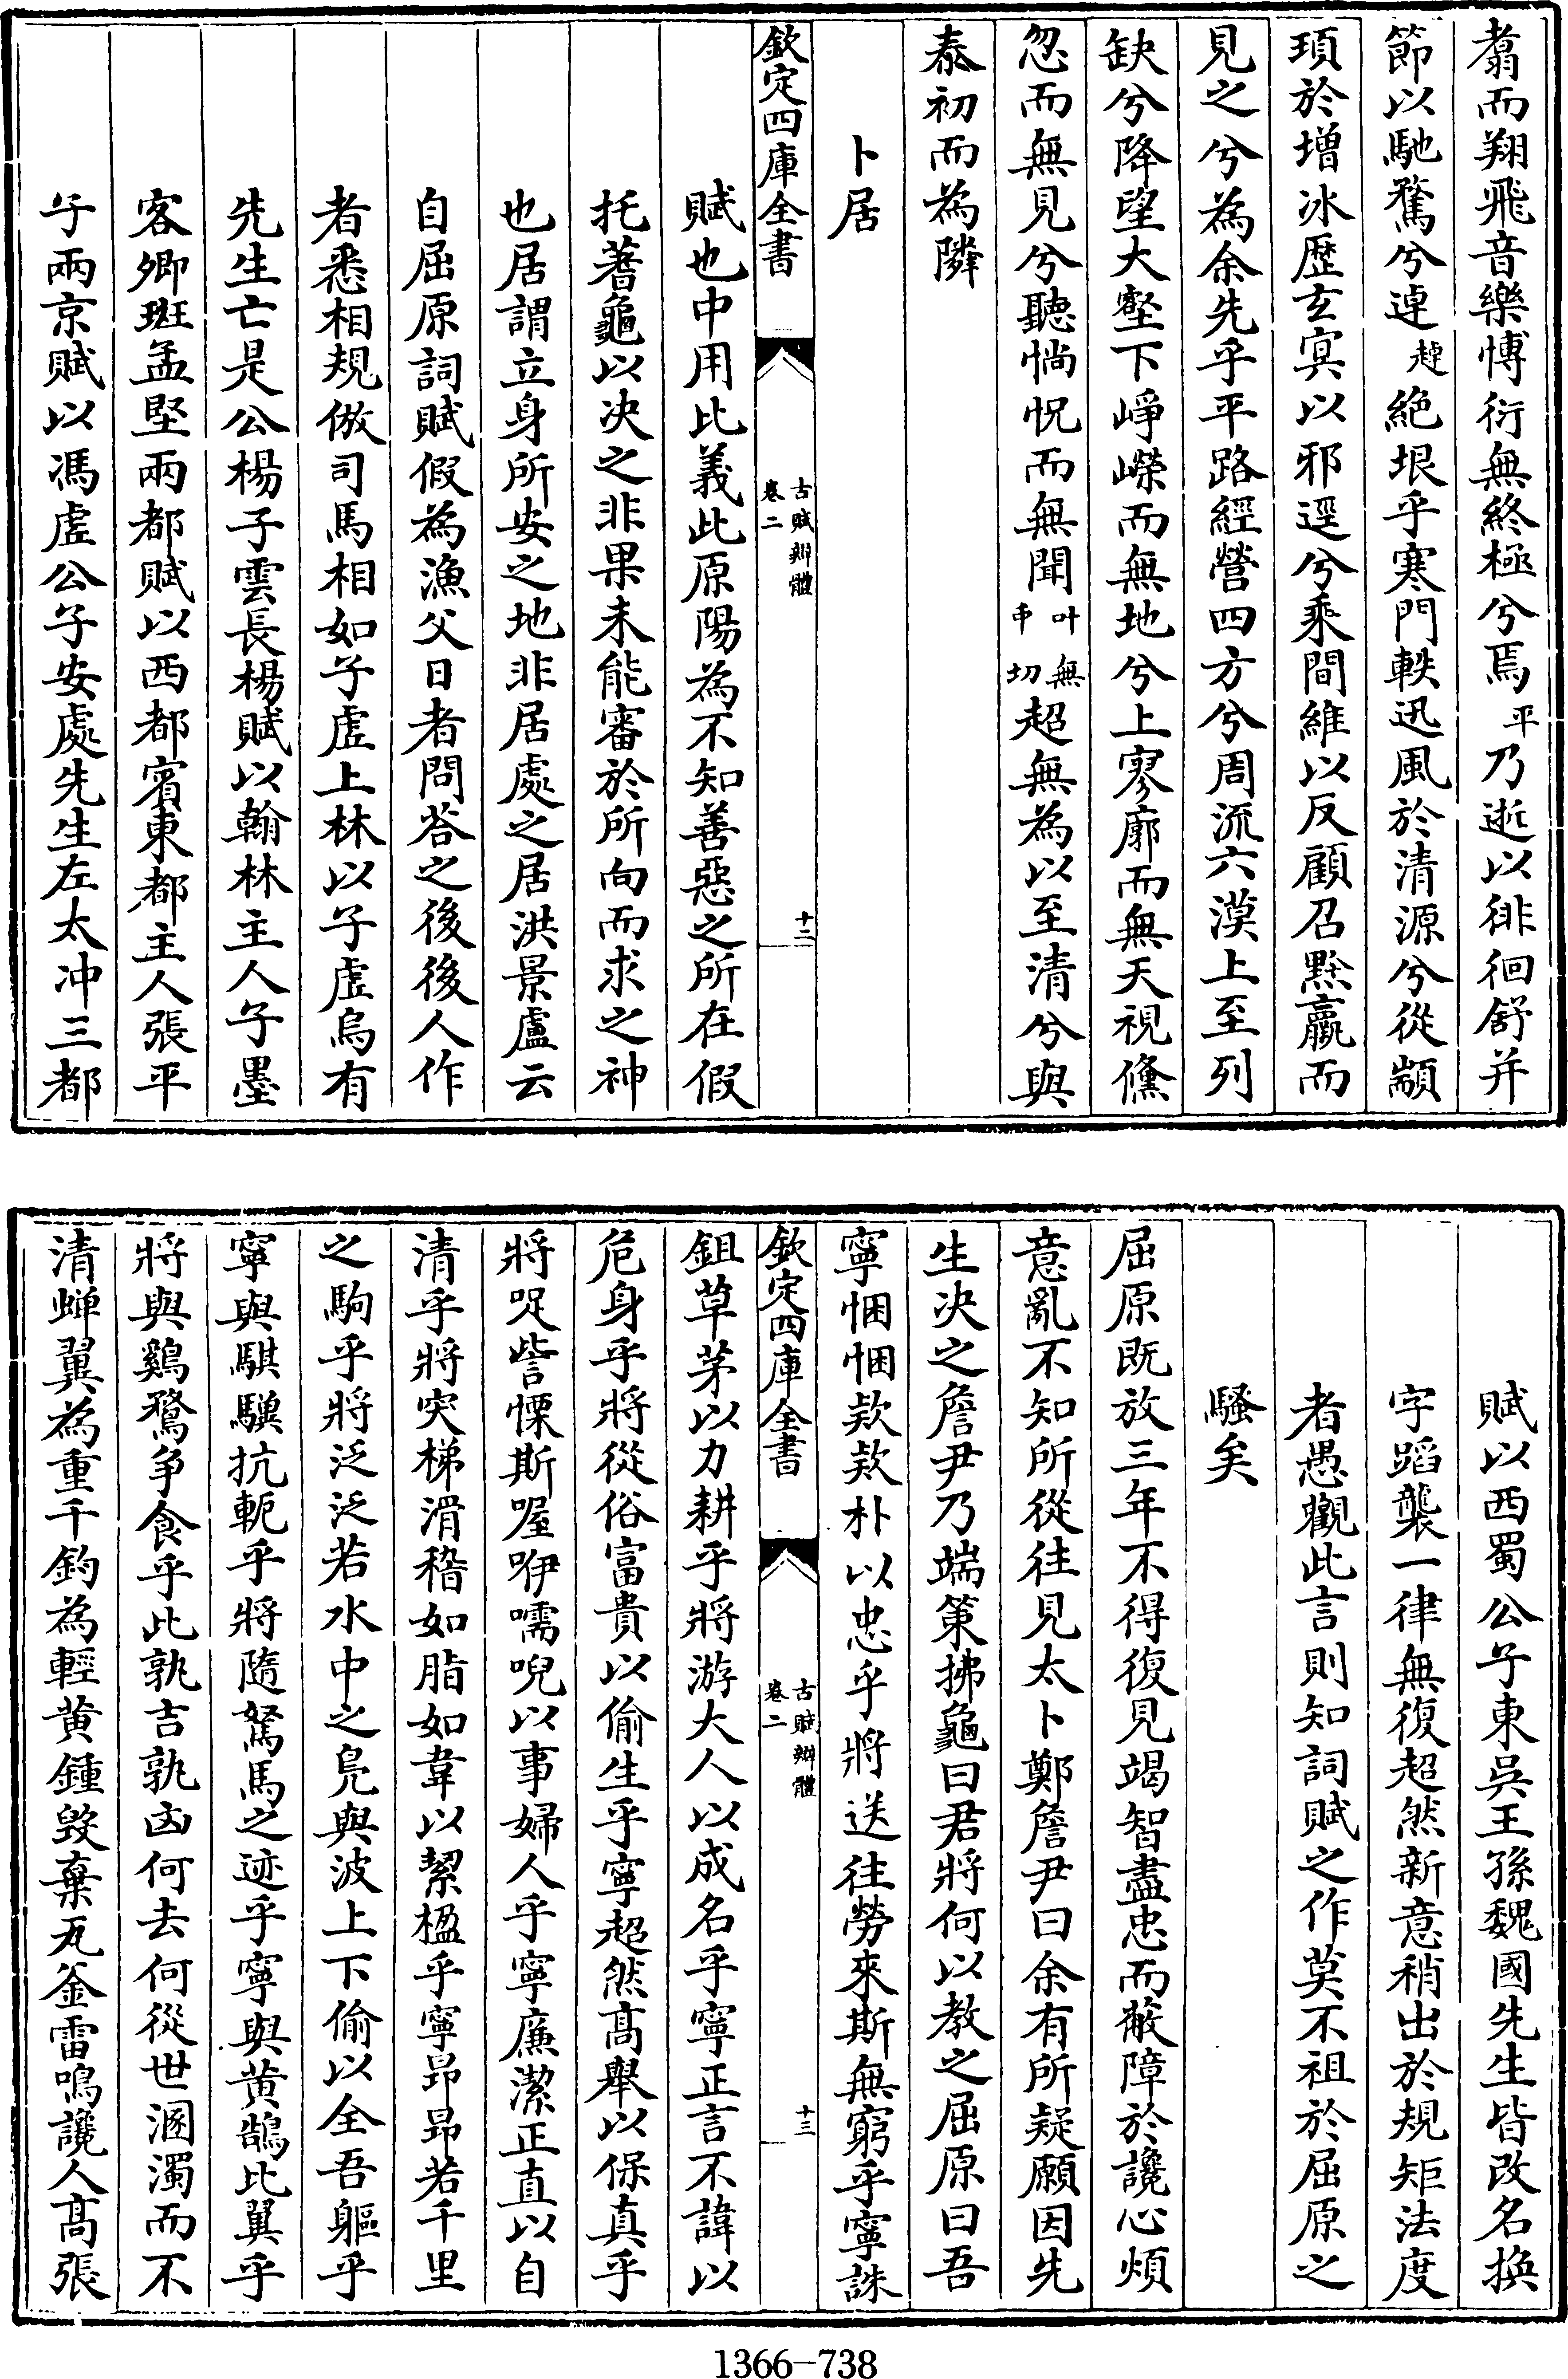 翥而翔飛音樂博衍無終極兮焉平乃逝以徘徊舒并
節以馳騖兮逴趠絶垠乎寒門軼迅風於清源兮從顓
頊於增冰歴玄冥以邪逕兮乘間維以反顧召黔羸而
見之兮為余先乎平路經營四方兮周流六漠上至列
缺兮降望大壑下崢嶸而無地兮上寥廓而無天視儵
忽而無見兮聽惝怳而無聞叶無巾切超無為以至清兮與
泰初而為隣
卜居
欽定四庫全書
古賦辯體
卷二
十二
賦也中用比義此原陽為不知善惡之所在假
托蓍龜以决之非果未能審於所向而求之神
也居謂立身所安之地非居處之居洪景盧云
自屈原詞賦假為漁父日者問荅之後後人作
者悉相規倣司馬相如子虚上林以子虚烏有
先生亡是公楊子雲長楊賦以翰林主人子墨
客卿班孟堅兩都賦以西都賓東都主人張平
子兩京賦以馮虚公子安處先生左太冲三都
賦以西蜀公子東吳王孫魏國先生皆改名換
字蹈襲一律無復超然新意稍出於規矩法度
者愚觀此言則知詞賦之作莫不祖於屈原之
騷矣
屈原既放三年不得復見竭智盡忠而蔽障於讒心煩
意亂不知所從往見太卜鄭詹尹曰余有所疑願因先
生决之詹尹乃端策拂龜曰君將何以教之屈原曰吾
寧悃悃欵欵朴以忠乎將送往勞來斯無窮乎寧誅
欽定四庫全書
古賦辯體
卷二
十三
鉏草茅以力耕乎將游大人以成名乎寧正言不諱以
危身乎將從俗富貴以偷生乎寧超然髙舉以保真乎
將哫訾慄斯喔咿嚅唲以事婦人乎寧廉潔正直以自
清乎將突梯滑稽如脂如韋以絜楹乎寧昻昻若千里
之駒乎將泛泛若水中之鳬與波上下偷以全吾軀乎
寧與騏驥抗軛乎將隨駑馬之迹乎寧與黄鵠比翼乎
將與鷄鶩争食乎此孰吉孰凶何去何從世溷濁而不
清蟬翼為重千鈞為輕黄鍾毁棄瓦釜雷鳴讒人髙張
1366-738